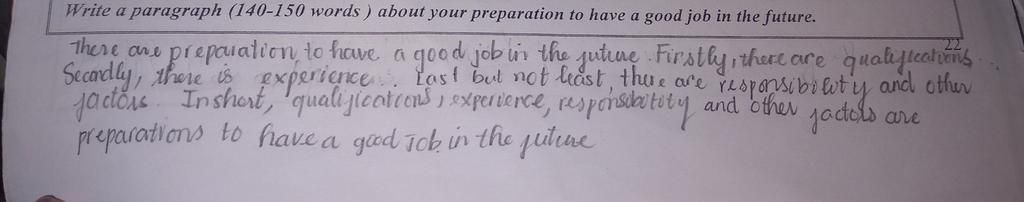 Write a paragraph (140-150 words ) about your preparation to have a good job in the future.
22
There are preparation, to have a good job in the future. Firstly, there are qualifications.
Secondly, there is experience. Last but not least, there are responsibility and other
factors. In short, qualifications, experience, responsibility and other factors are
preparations to have a good job in the future